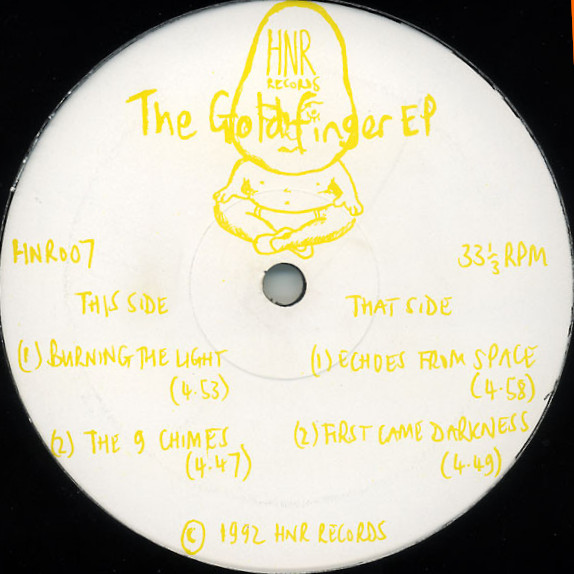 HNR
RECORDS
The Goldfinger EP
HNR007
33 1/3 RPM
THIS SIDE
THAT SIDE
(1) BURNING THE LIGHT
(4.53)
(1) ECHOES FROM SPACE
(4.58)
(2) THE 9 CHIMES
(4.47)
(2) FIRST CAME DARKNESS
(4.49)
© 1992 HNR RECORDS